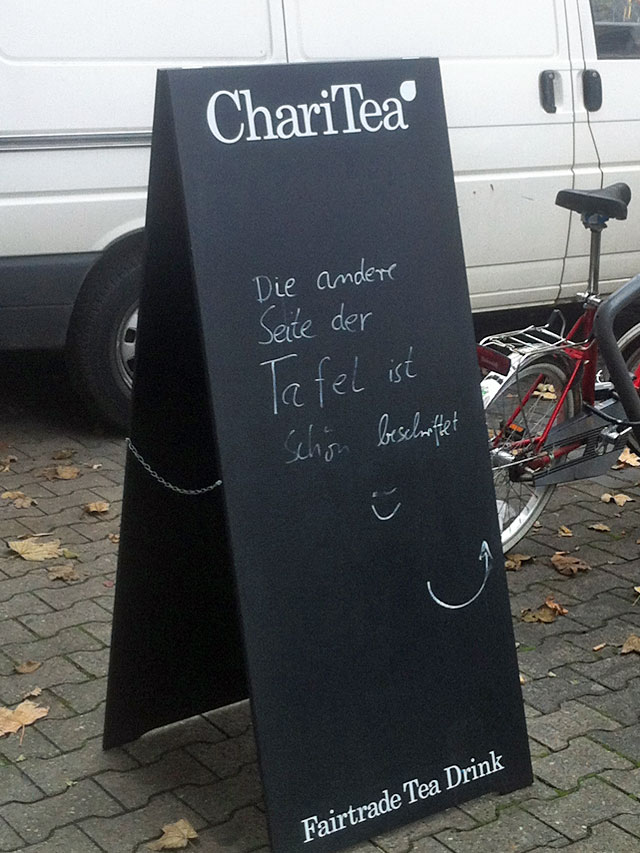 ChariTea
Die andere
Seite der
Tafel ist
schön beschriftet
Fairtrade Tea Drink